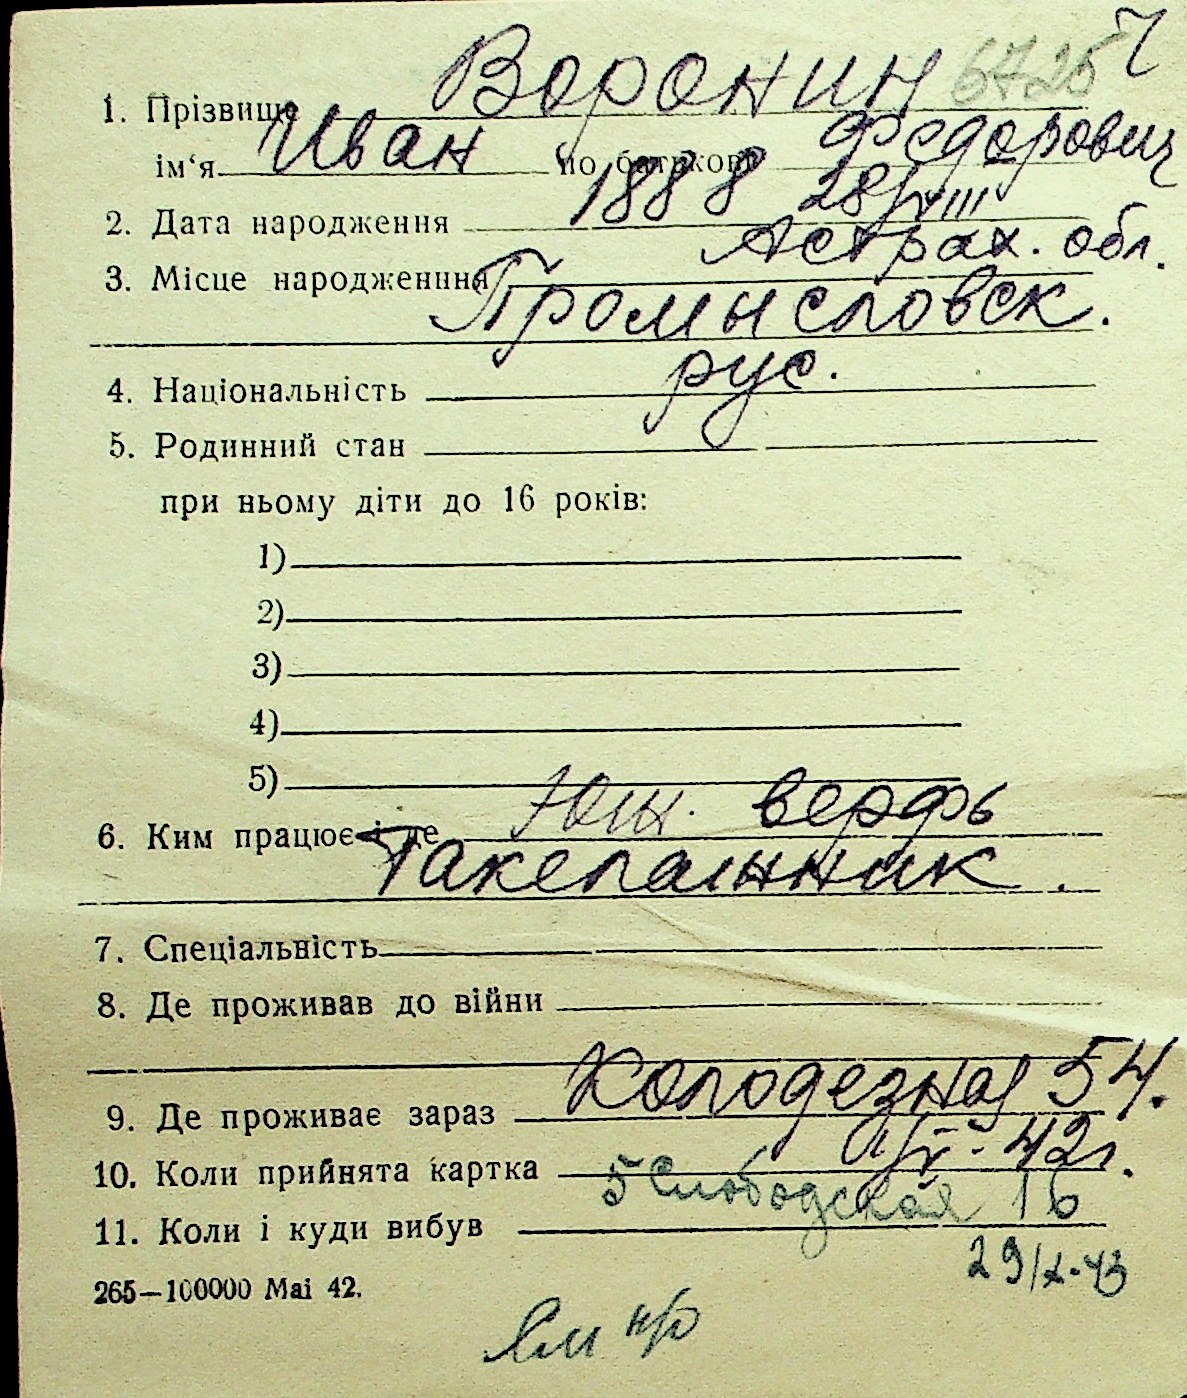 Ч
1. Прізвище Воронин 6725
ім‘я Иван по батькові Федорович
2. Дата народження 1888 28/VIII
Астрах. обл.
3. Місце народженння
Промысловск.
4. Національність рус.
5. Родинний стан
при ньому діти до 16 років:
1)
2)
3)
4)
5)
6. Ким працює і де Юж. верфь
Такелажник.
7. Спеціальність
8. Де проживав до війни
9. Де проживає зараз Колодезная 54.
10. Коли прийнята картка /V-42г.
5 Слободская 16
11. Коли і куди вибув
29/X-43
265—100000 Mai 42.